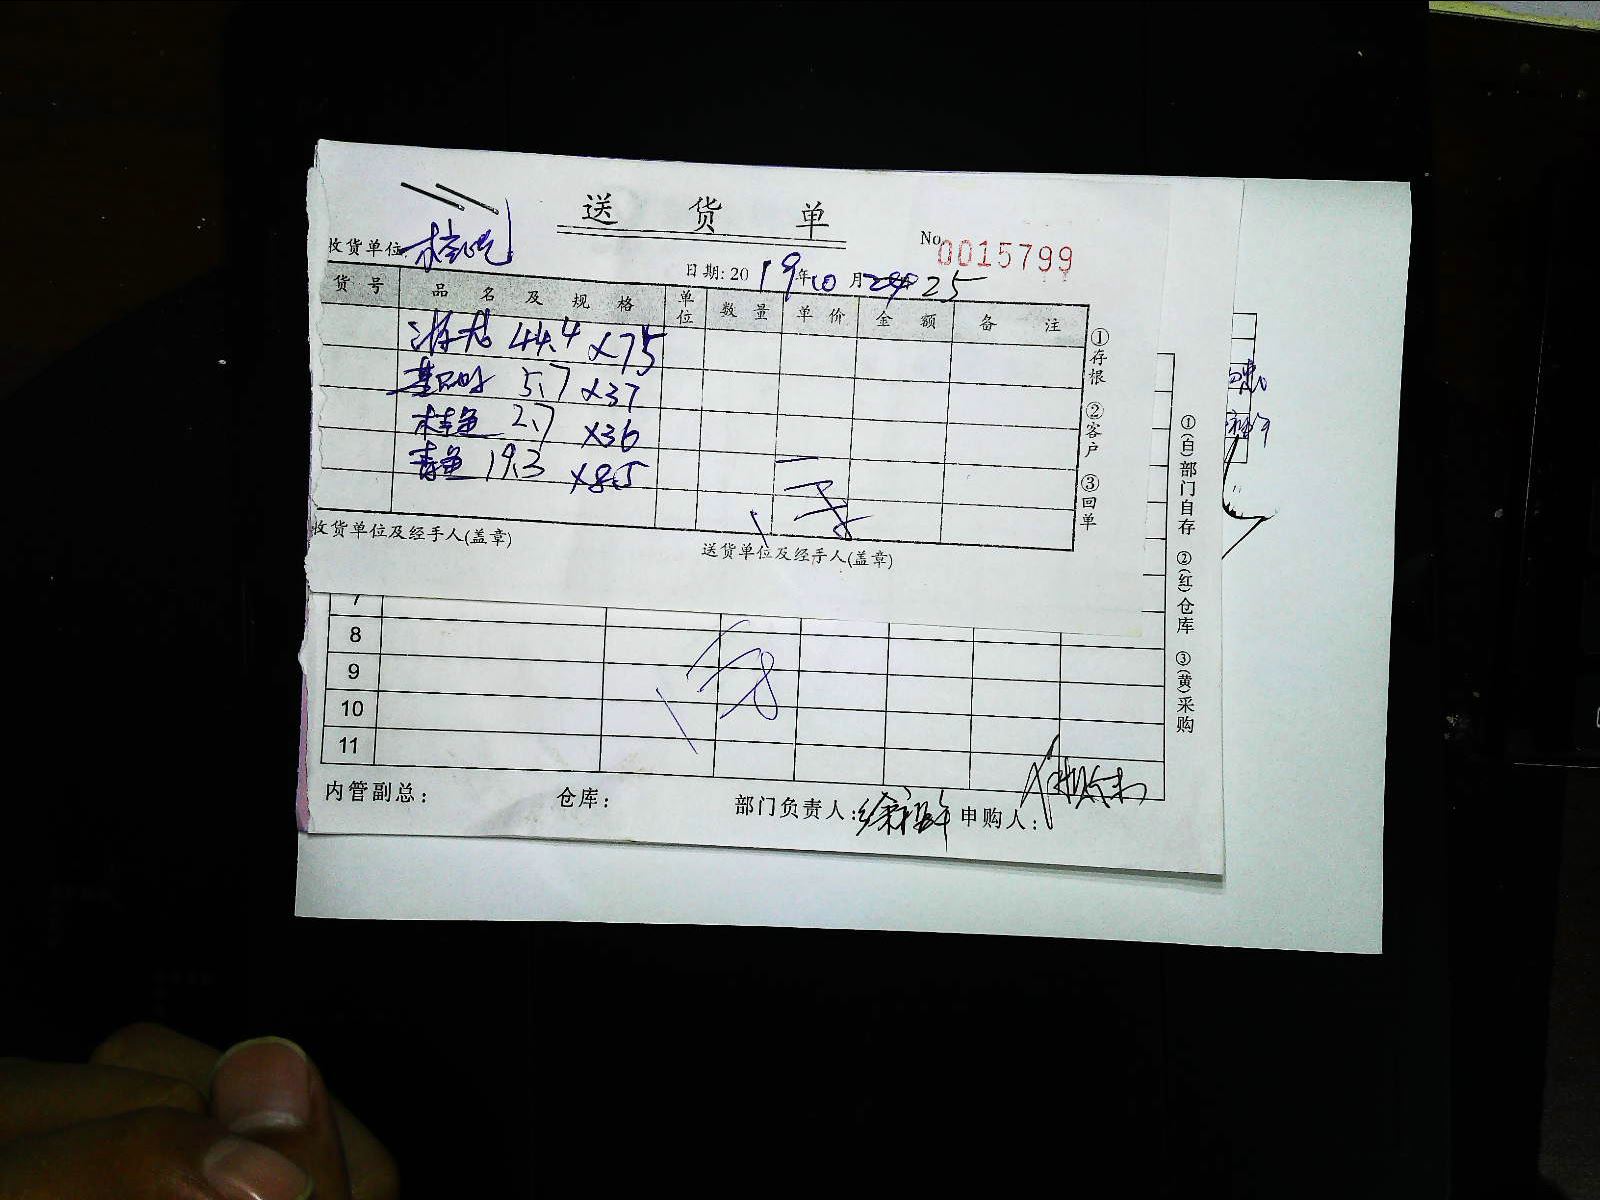 送 货 单
No 0015799
收货单位
日期: 2019年10月 25
货号 品名及规格 单位 数量 单价 金额 备注
44.4 ×75
5.7 ×37
桂鱼 2.7 ×36
青鱼 19.3 ×8.5
①存根 ②客户 ③回单
收货单位及经手人(盖章)
送货单位及经手人(盖章)
7
8
9
10
11
①(白)部门自存 ②(红)仓库 ③(黄)采购
内管副总: 仓库: 部门负责人: 申购人: